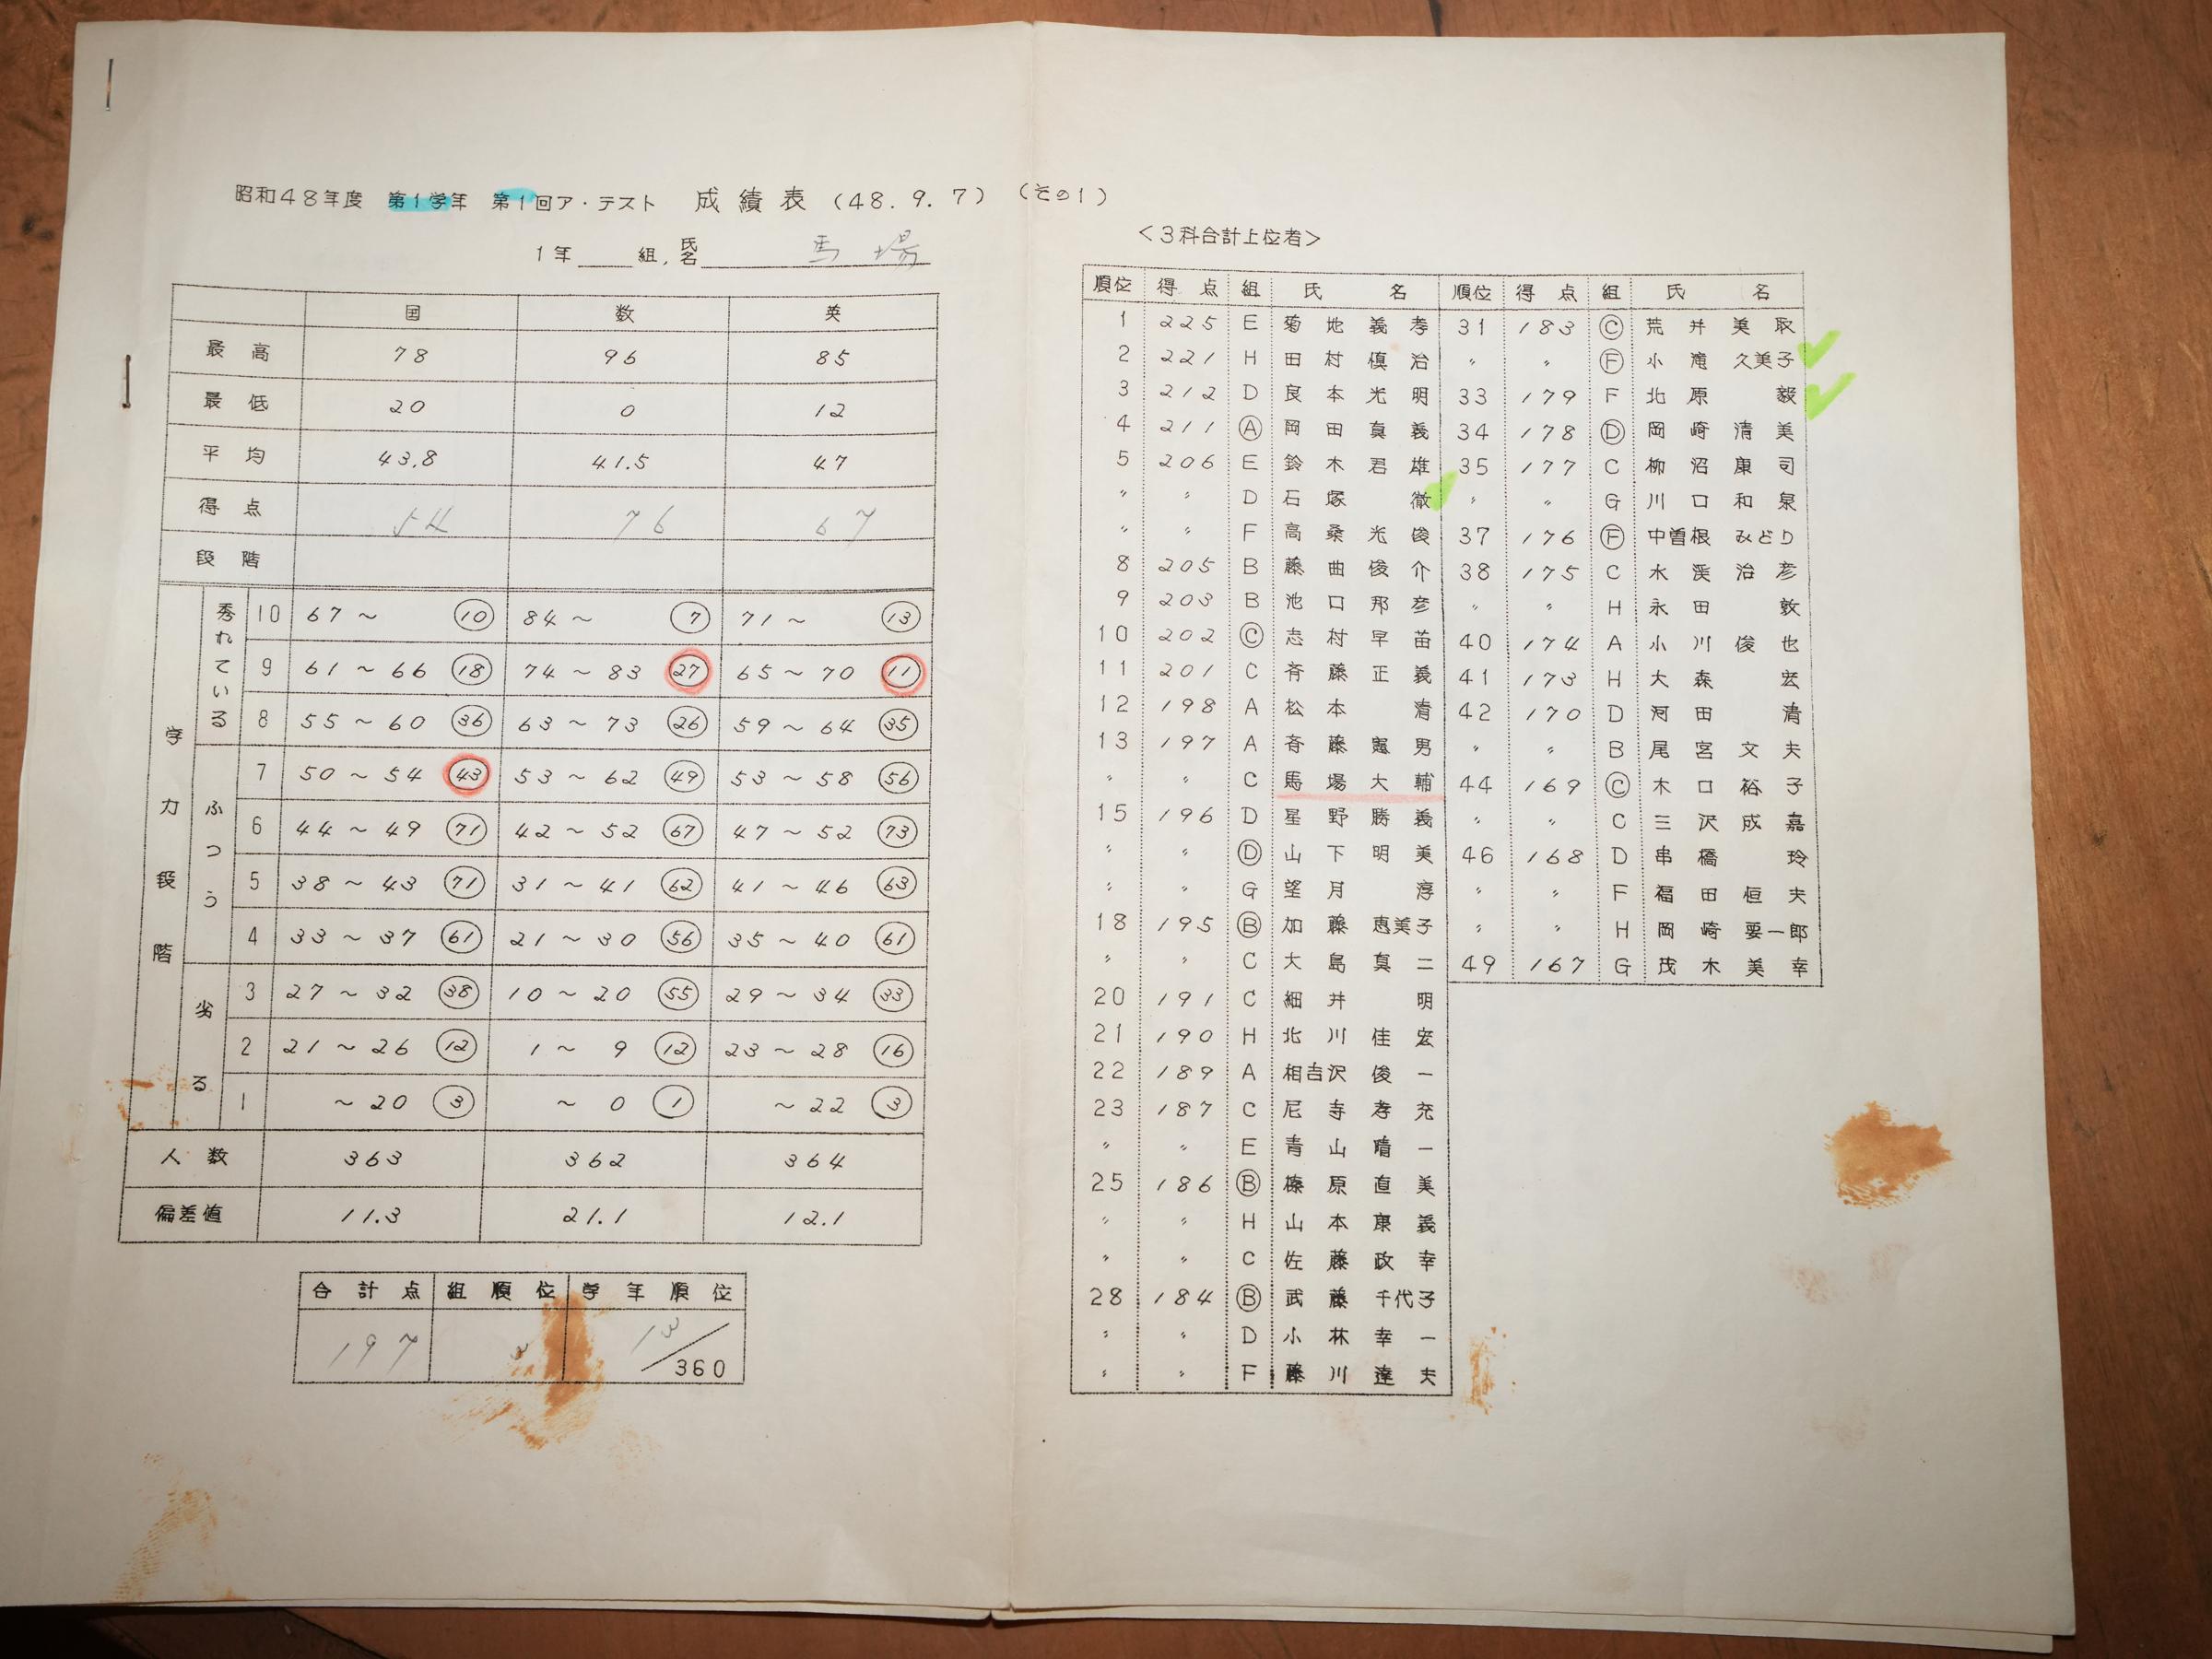 昭和48年度 第1学年 第1回ア・テスト 成績表 (48.9.7) (その1)
1年 組, 氏名 馬場
国 数 英
最高 78 96 85
最低 20 0 12
平均 43.8 41.5 47
得点 54 76 67
段階
学力段階
秀れている
10 67〜 ⑩ 84〜 ⑦ 71〜 ⑬
9 61〜66 ⑱ 74〜83 ㉗ 65〜70 ⑪
8 55〜60 ㊱ 63〜73 ㉖ 59〜64 ㉟
ふつう
7 50〜54 ㊸ 53〜62 ㊾ 53〜58 56
6 44〜49 71 42〜52 67 47〜52 73
5 38〜43 71 31〜41 62 41〜46 63
4 33〜37 61 21〜30 56 35〜40 61
劣る
3 27〜32 ㊳ 10〜20 55 29〜34 ㉝
2 21〜26 ⑫ 1〜9 ⑫ 23〜28 ⑯
1 〜20 ③ 〜0 ① 〜22 ③
人数 363 362 364
偏差値 11.3 21.1 12.1
合計点 組順位 学年順位
197 3 13/360
<3科合計上位者>
順位 得点 組 氏名
1 225 E 菊地義孝
2 221 H 田村慎治
3 212 D 良本光明
4 211 Ⓐ 岡田真義
5 206 E 鈴木君雄
〃 〃 D 石塚徹
〃 〃 F 高桑光俊
8 205 B 藤曲俊介
9 203 B 池口邦彦
10 202 Ⓒ 志村早苗
11 201 C 斉藤正義
12 198 A 松本清
13 197 A 斉藤憲男
〃 〃 C 馬場大輔
15 196 D 星野勝義
〃 〃 Ⓓ 山下明美
〃 〃 G 望月淳
18 195 Ⓑ 加藤恵美子
〃 〃 C 大島真二
20 191 C 細井明
21 190 H 北川佳宏
22 189 A 相吉沢俊一
23 187 C 尼寺孝充
〃 〃 E 青山晴一
25 186 Ⓑ 榛原直美
〃 〃 H 山本康義
〃 〃 C 佐藤政幸
28 184 Ⓑ 武藤千代子
〃 〃 D 小林幸一
〃 〃 F 藤川達夫
順位 得点 組 氏名
31 183 Ⓒ 荒井美取
〃 〃 Ⓕ 小滝久美子
33 179 F 北原毅
34 178 Ⓓ 岡崎清美
35 177 C 柳沼康司
〃 〃 G 川口和泉
37 176 Ⓕ 中曽根みどり
38 175 C 水渓治彦
〃 〃 H 永田敦
40 174 A 小川俊也
41 173 H 大森宏
42 170 D 河田清
〃 〃 B 尾宮文夫
44 169 Ⓒ 木口裕子
〃 〃 C 三沢成嘉
46 168 D 串橋玲
〃 〃 F 福田恒夫
〃 〃 H 岡崎要一郎
49 167 G 茂木美幸